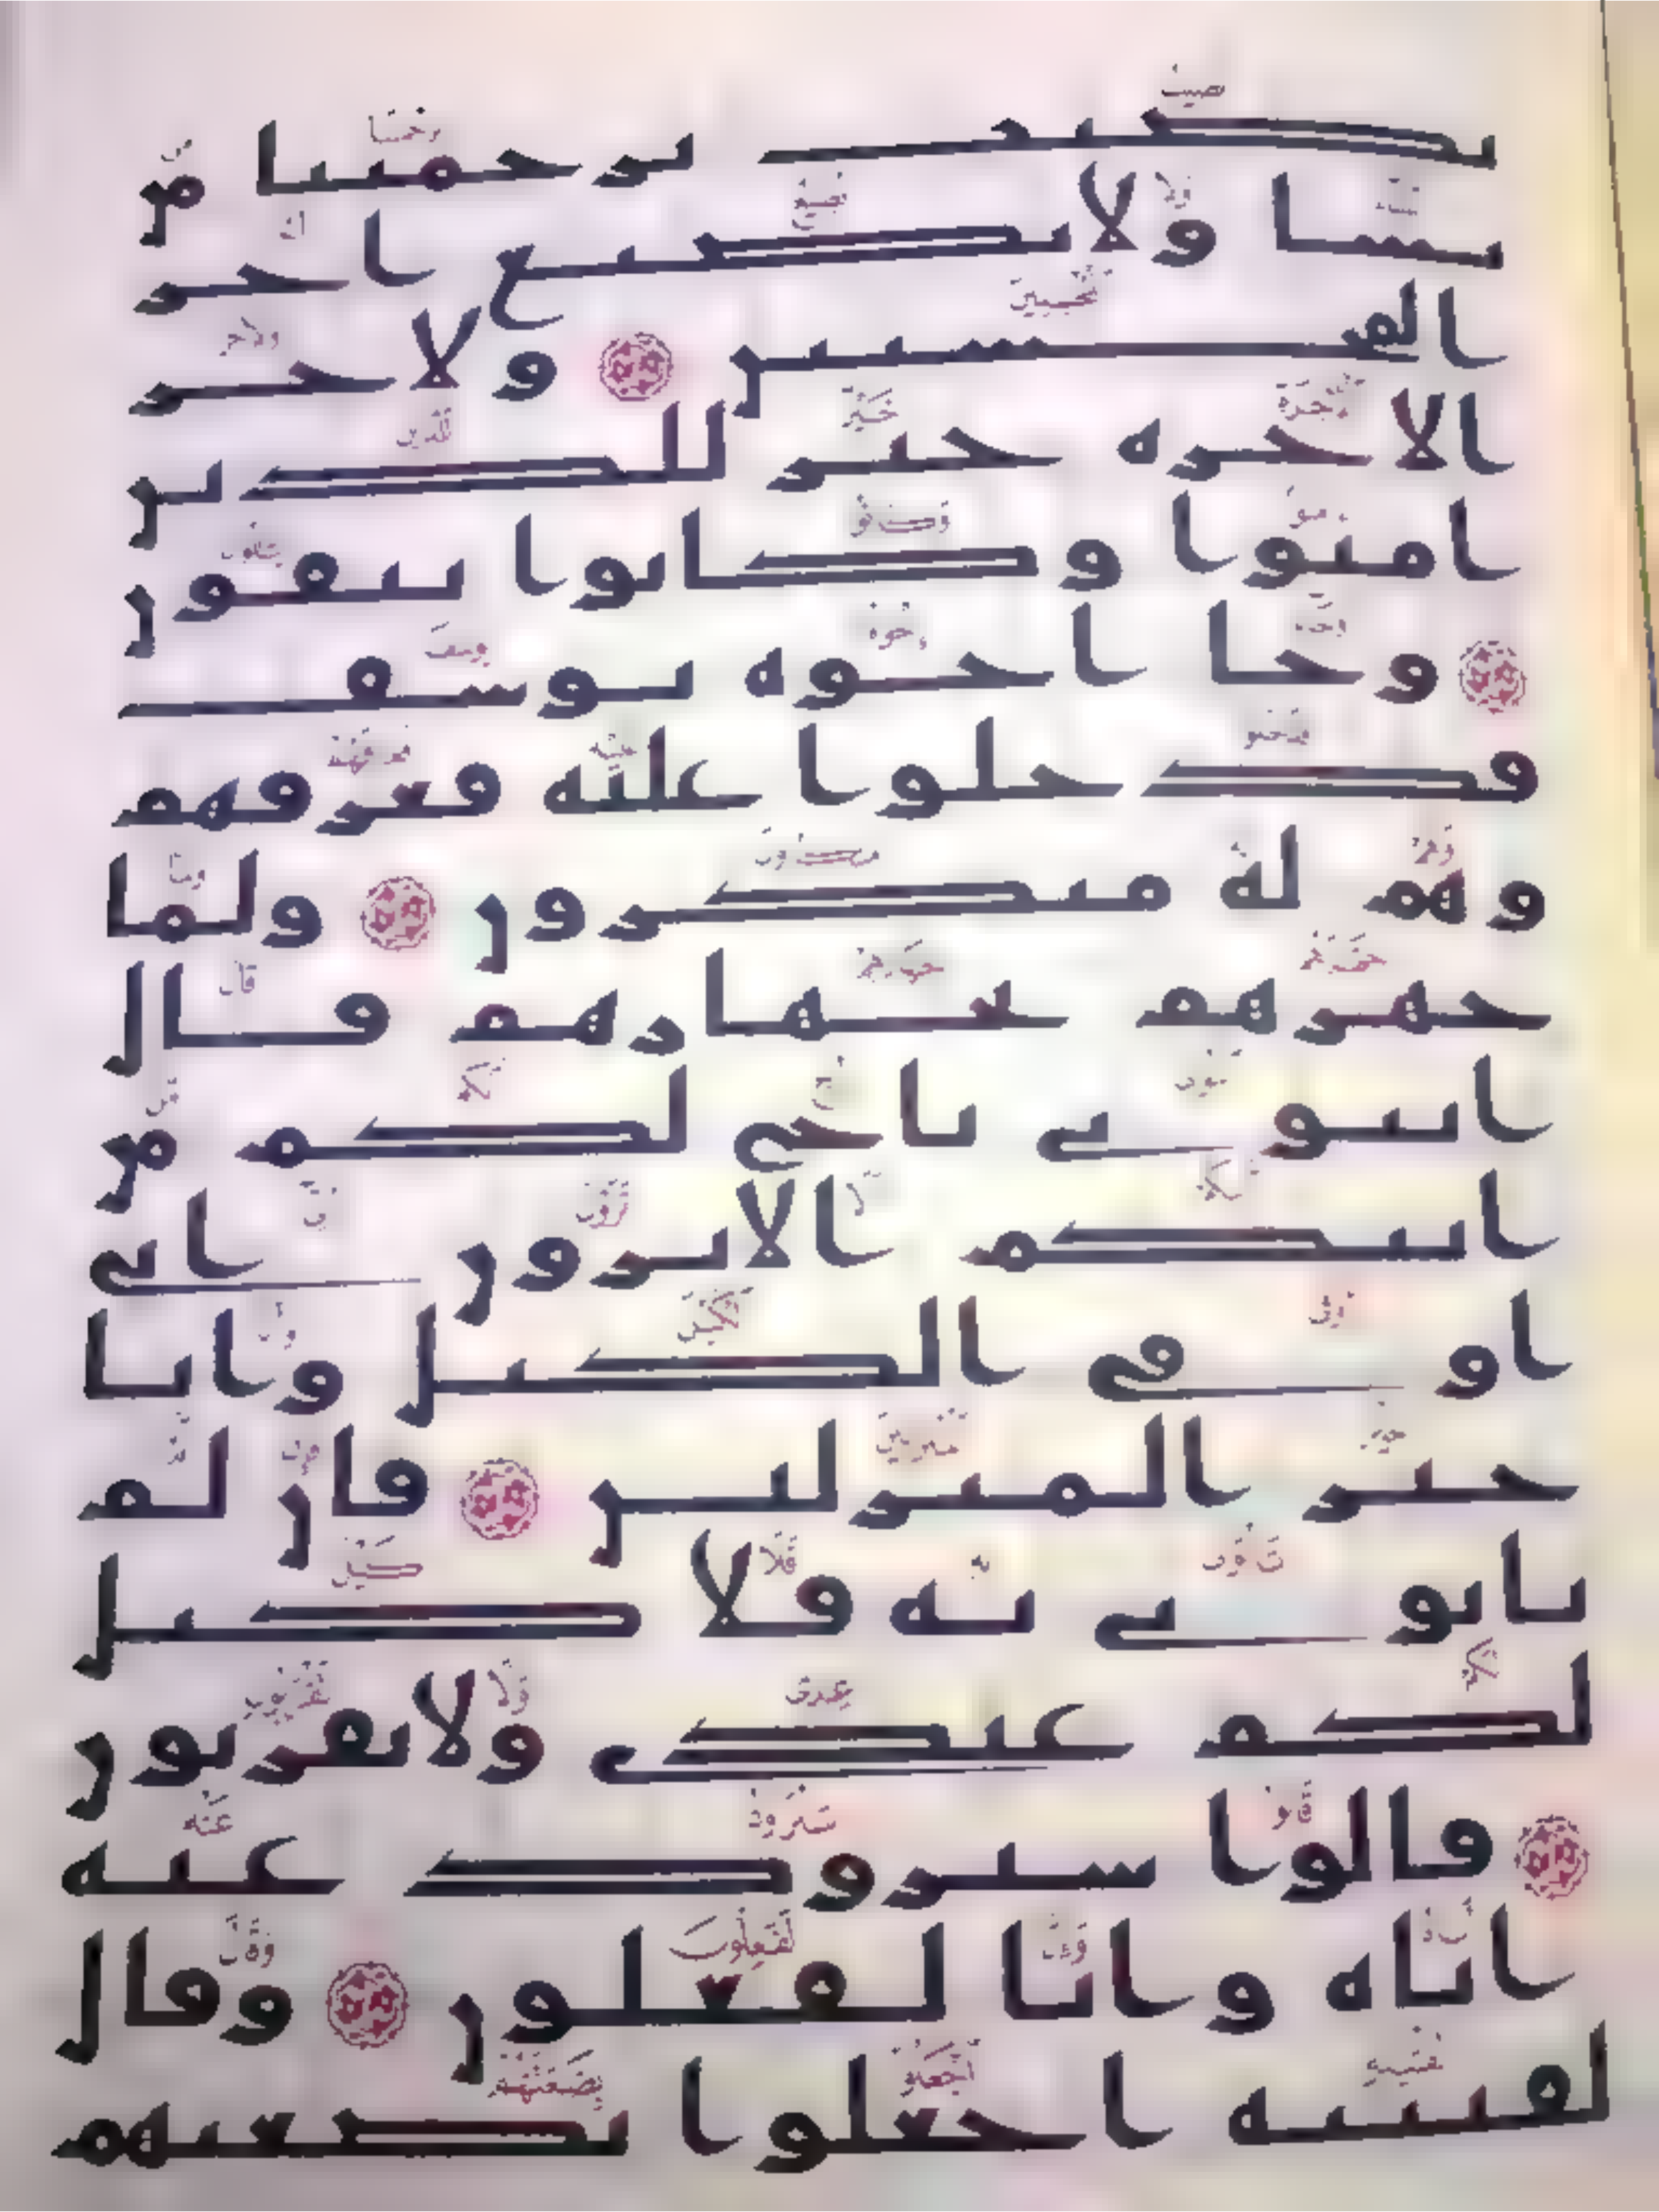 نصيب برحمتنا من
نشا ولا نضيع اجر
المحسنين ولاجر
الاخره خير للذين
امنوا وكانوا يتقون
وجا اخوه يوسف
فدخلوا عليه فعرفهم
وهم له منكرون ولما
جهزهم بجهازهم قال
ايتوني باخ لكم من
ابيكم الا ترون اني
اوفي الكيل وانا
خير المنزلين فان لم
تاتوني به فلا كيل
لكم عندي ولا تقربون
قالوا سنرود عنه
اباه وانا لفعلون وقال
لفتيته اجعلوا بضعتهم